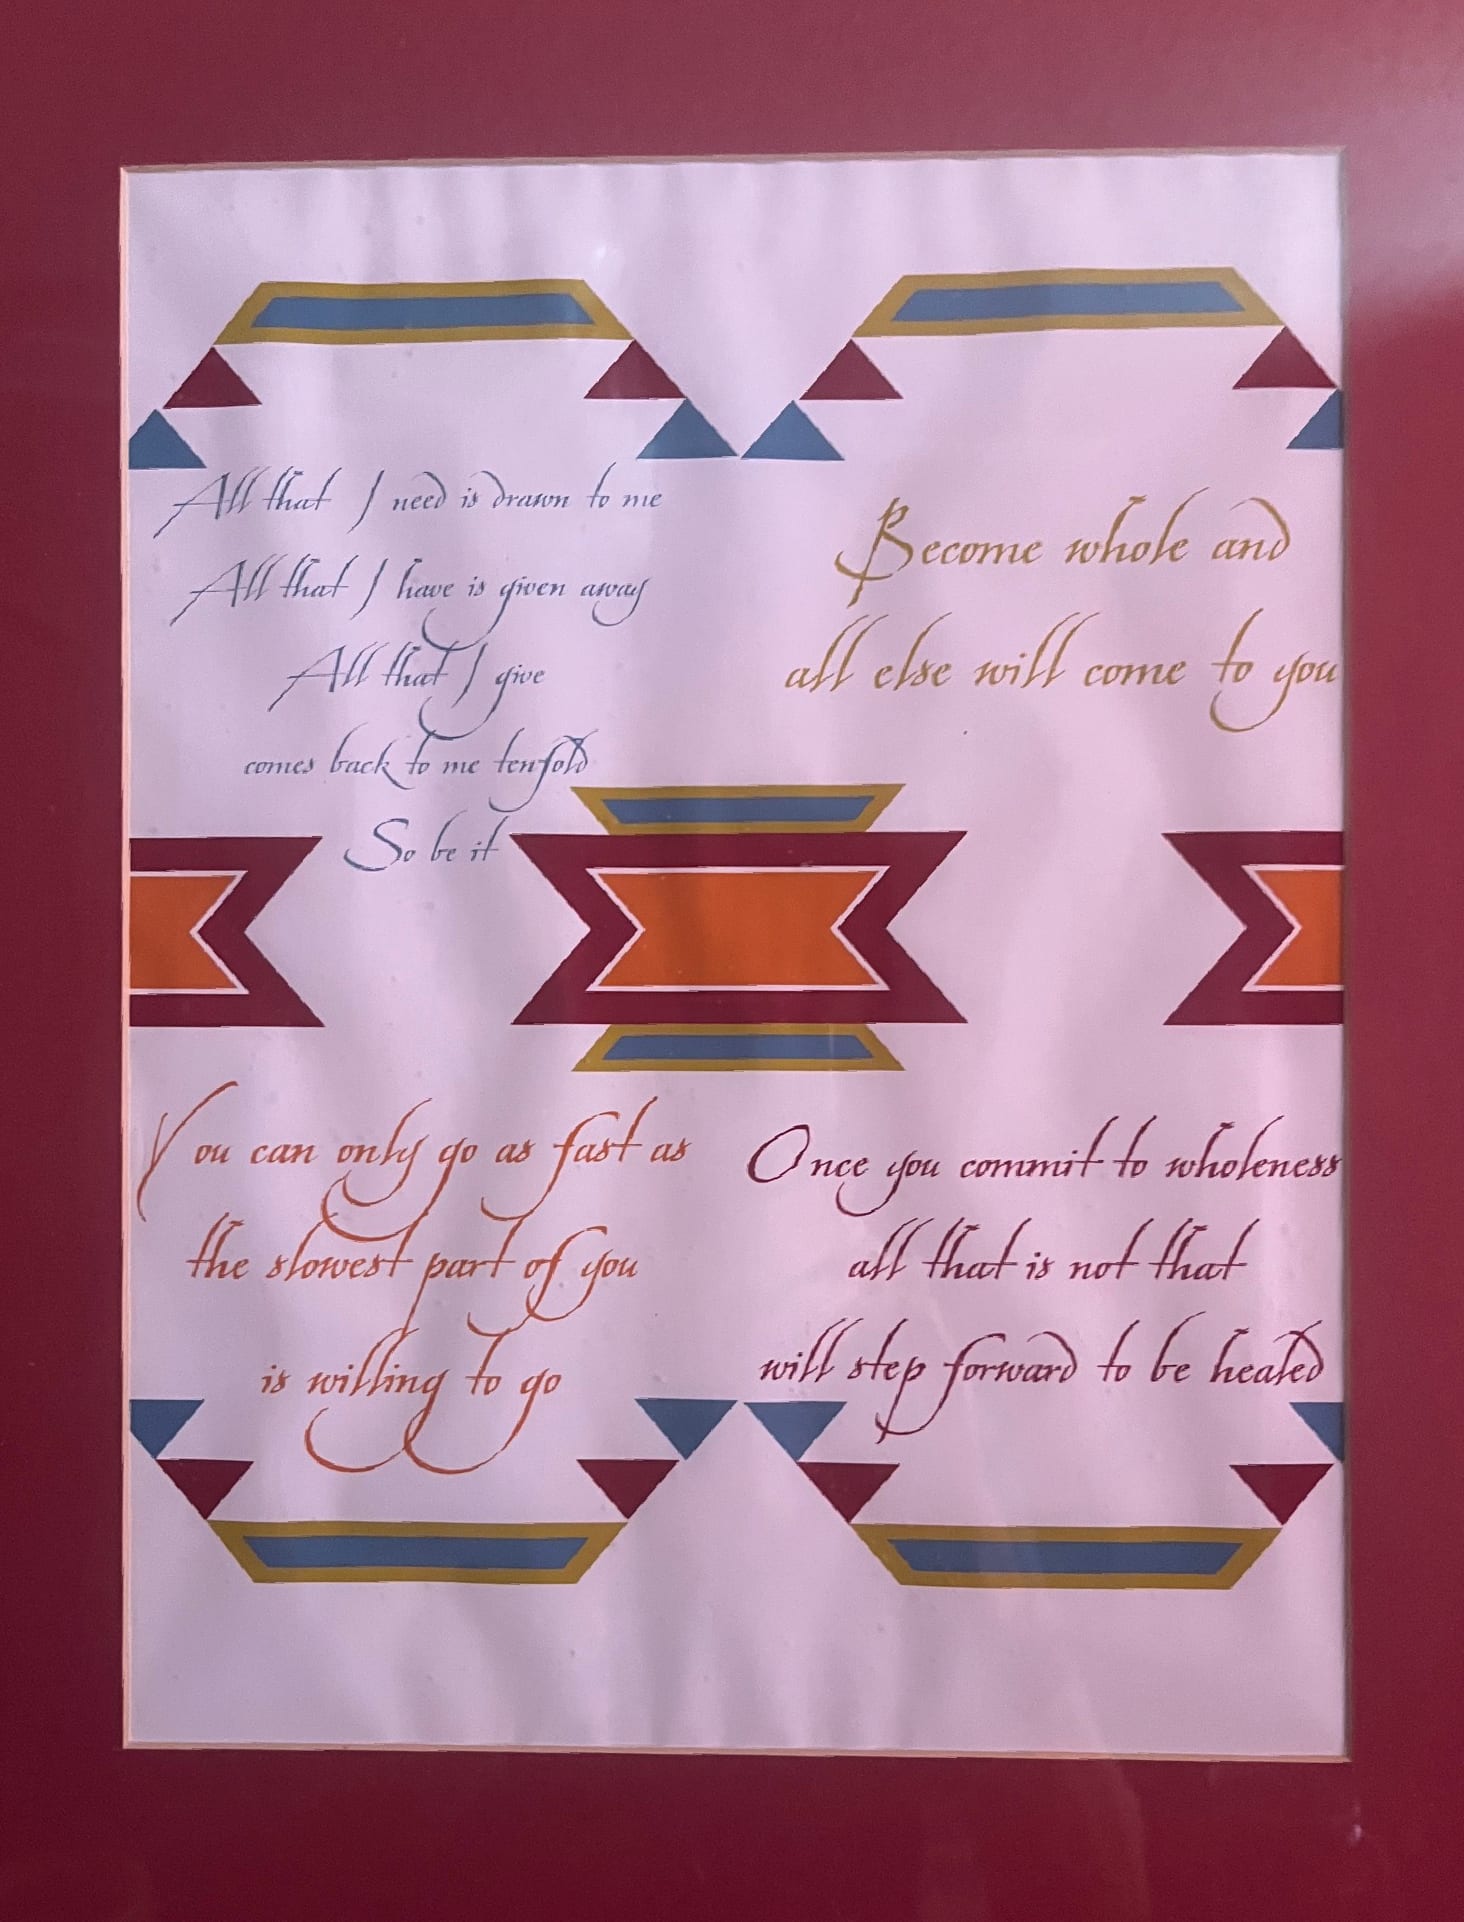 All that I need is drawn to me
All that I have is given away
All that I give
comes back to me tenfold
So be it
Become whole and
all else will come to you
You can only go as fast as
the slowest part of you
is willing to go
Once you commit to wholeness
all that is not that
will step forward to be healed